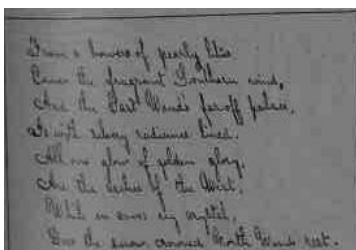 From a bower of pearly lilies
Comes the fragrant Southern wind,
And the East Wind's far off palace,
Is with silvery radiance lined.
All one glow of golden glory,
Are the of the West,
While in caves icy crystal,
Does the snow crowned North Wind rest.